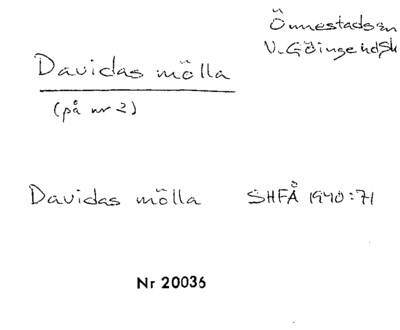 Önnestads sn
V. Göinge hd Sk
Davidas mölla
(på nr 2)
Davidas mölla SHFÅ 1940:71
Nr 20036